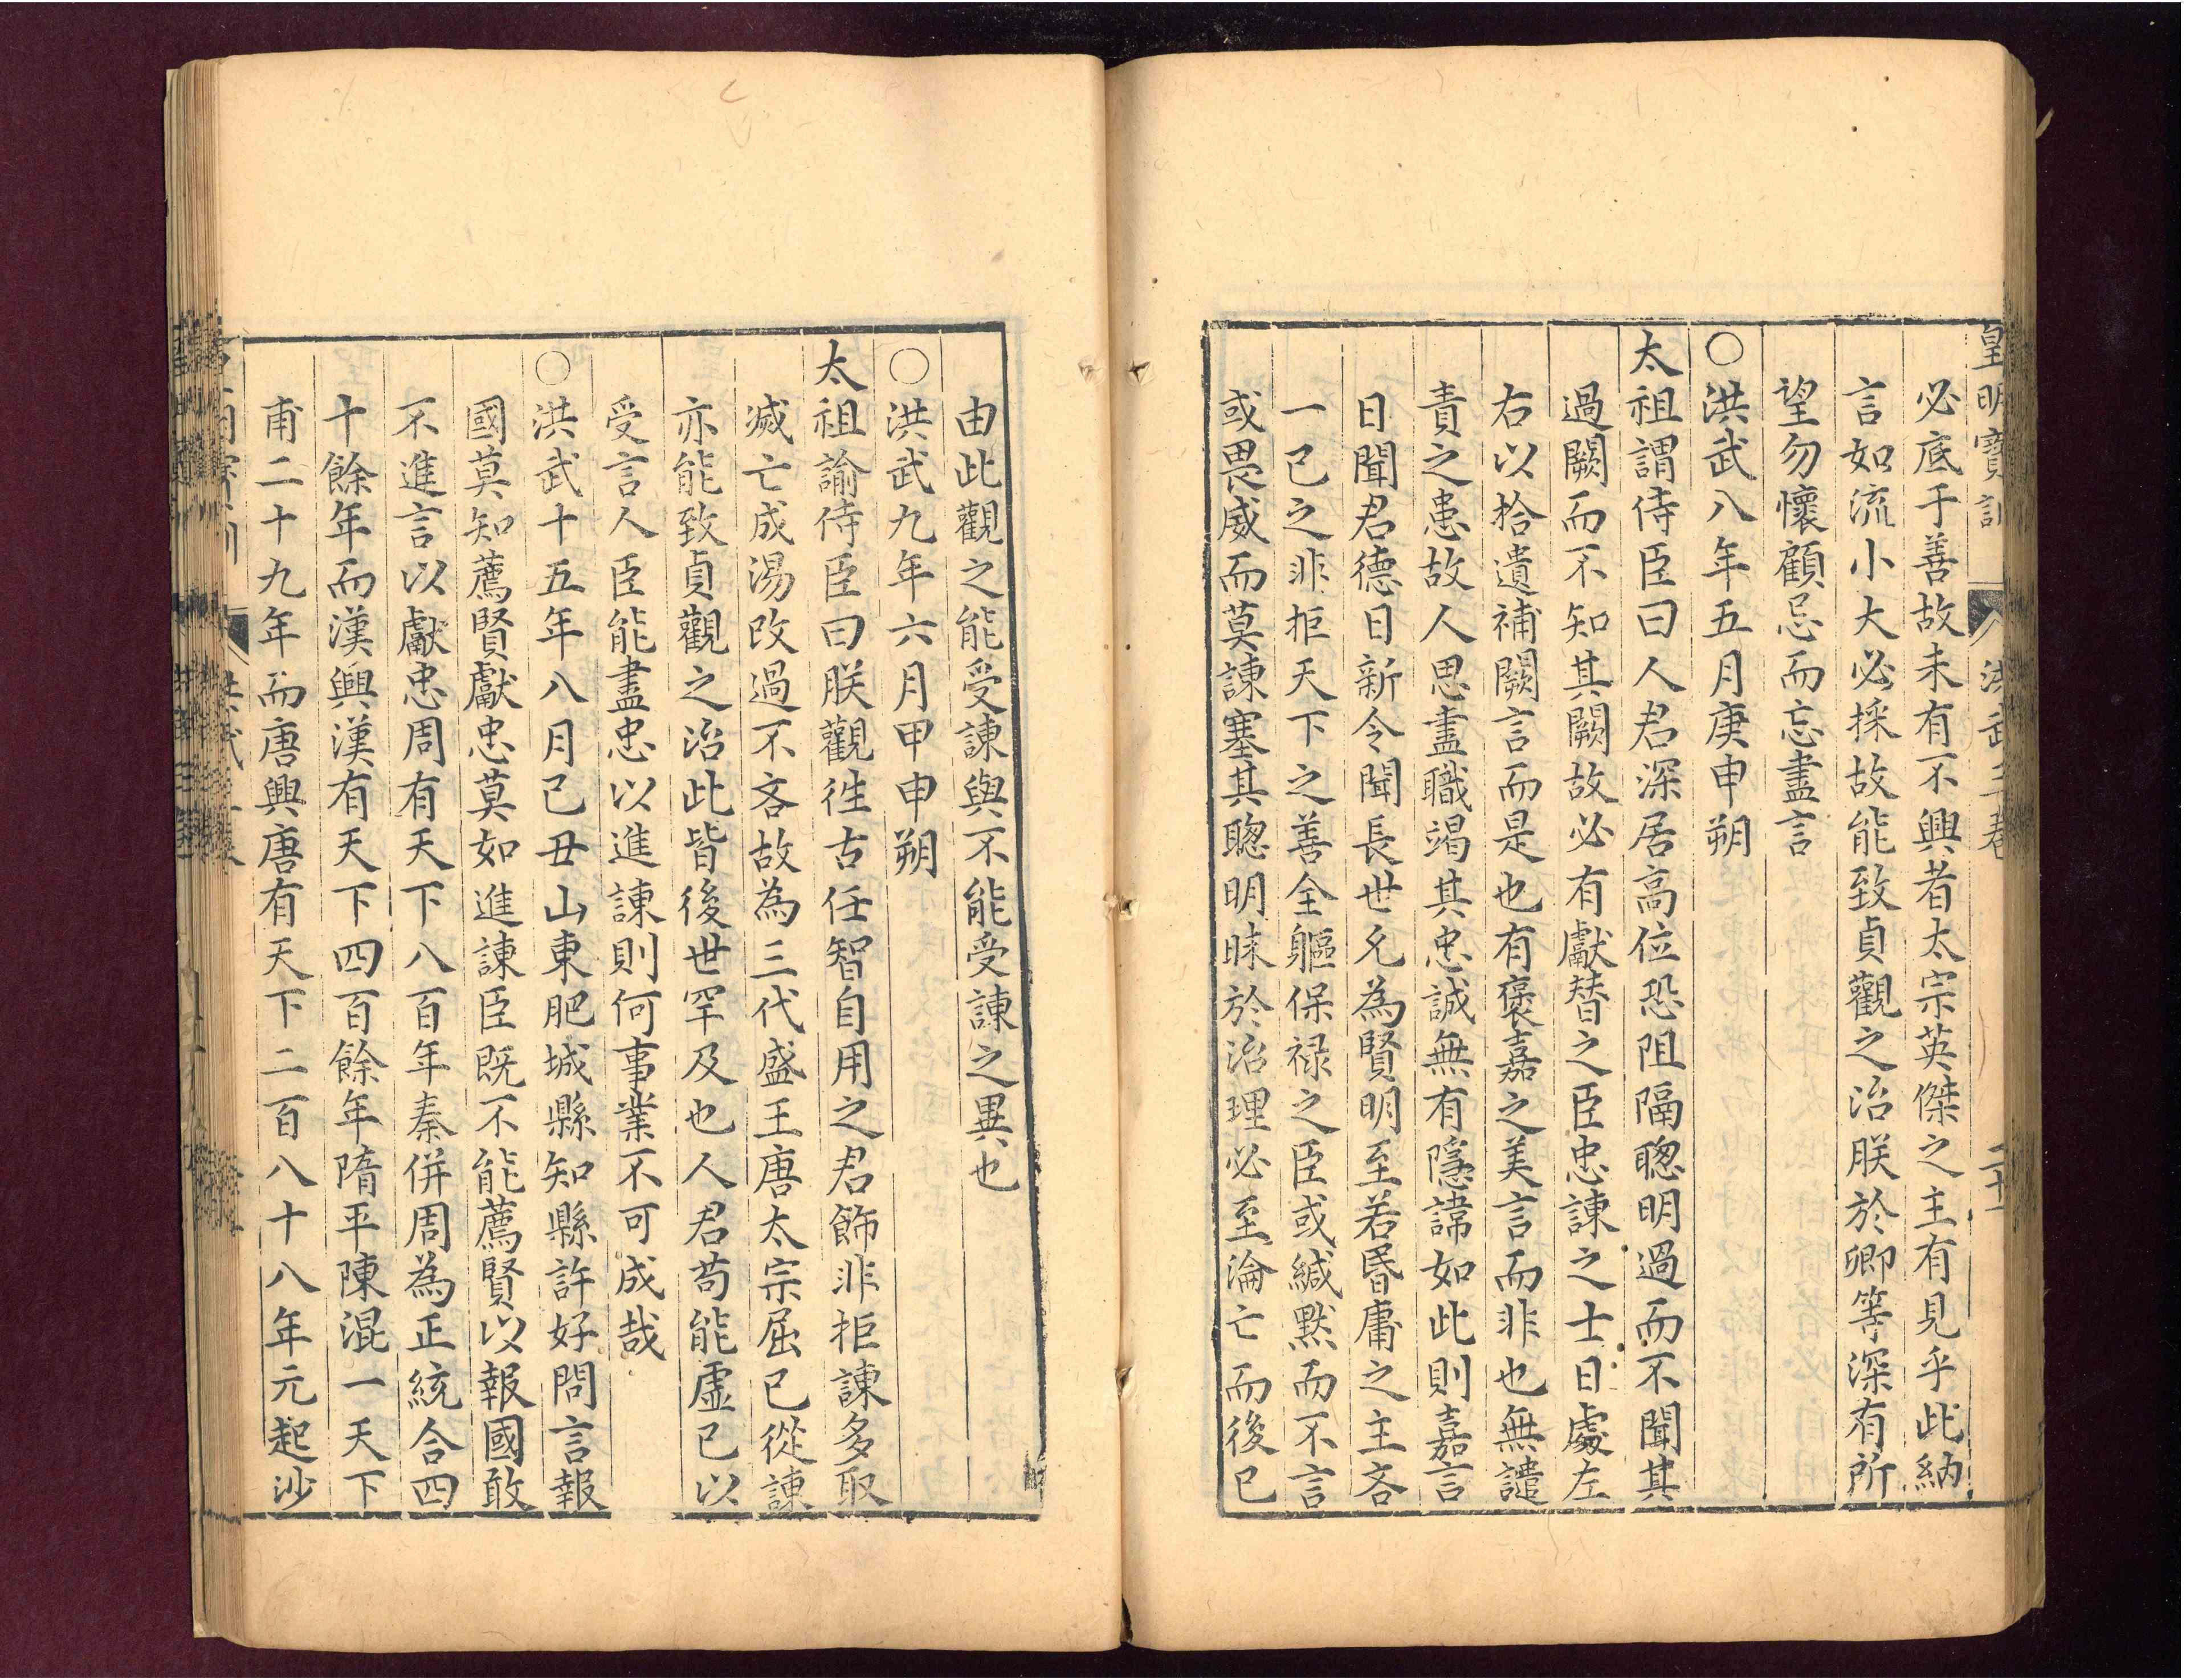 皇明寶訓 洪武三卷 二十一
必底于善故未有不興者太宗英傑之主有見乎此納
言如流小大必採故能致貞觀之治朕於卿等深有所
望勿懷顧忌而忘盡言
○洪武八年五月庚申朔
太祖謂侍臣曰人君深居高位恐阻隔聦明過而不聞其
過闕而不知其闕故必有獻替之臣忠諫之士日處左
右以拾遺補闕言而是也有褒嘉之美言而非也無譴
責之患故人思盡職竭其忠誠無有隱諱如此則嘉言
日聞君德日新令聞長世允為賢明至若昏庸之主吝
一己之非拒天下之善全軀保禄之臣或緘黙而不言
或畏威而莫諫塞其聦明昧於治理必至淪亡而後已
由此觀之能受諫與不能受諫之異也
○洪武九年六月甲申朔
太祖諭侍臣曰朕觀徃古任智自用之君飾非拒諫多取
滅亡成湯改過不吝故為三代盛王唐太宗屈己從諫
亦能致貞觀之治此皆後世罕及也人君苟能虛己以
受言人臣能盡忠以進諫則何事業不可成哉
○洪武十五年八月己丑山東肥城縣知縣許好問言報
國莫知薦賢獻忠莫如進諫臣既不能薦賢以報國敢
不進言以獻忠周有天下八百年秦併周為正統合四
十餘年而漢興漢有天下四百餘年隋平陳混一天下
甫二十九年而唐興唐有天下二百八十八年元起沙